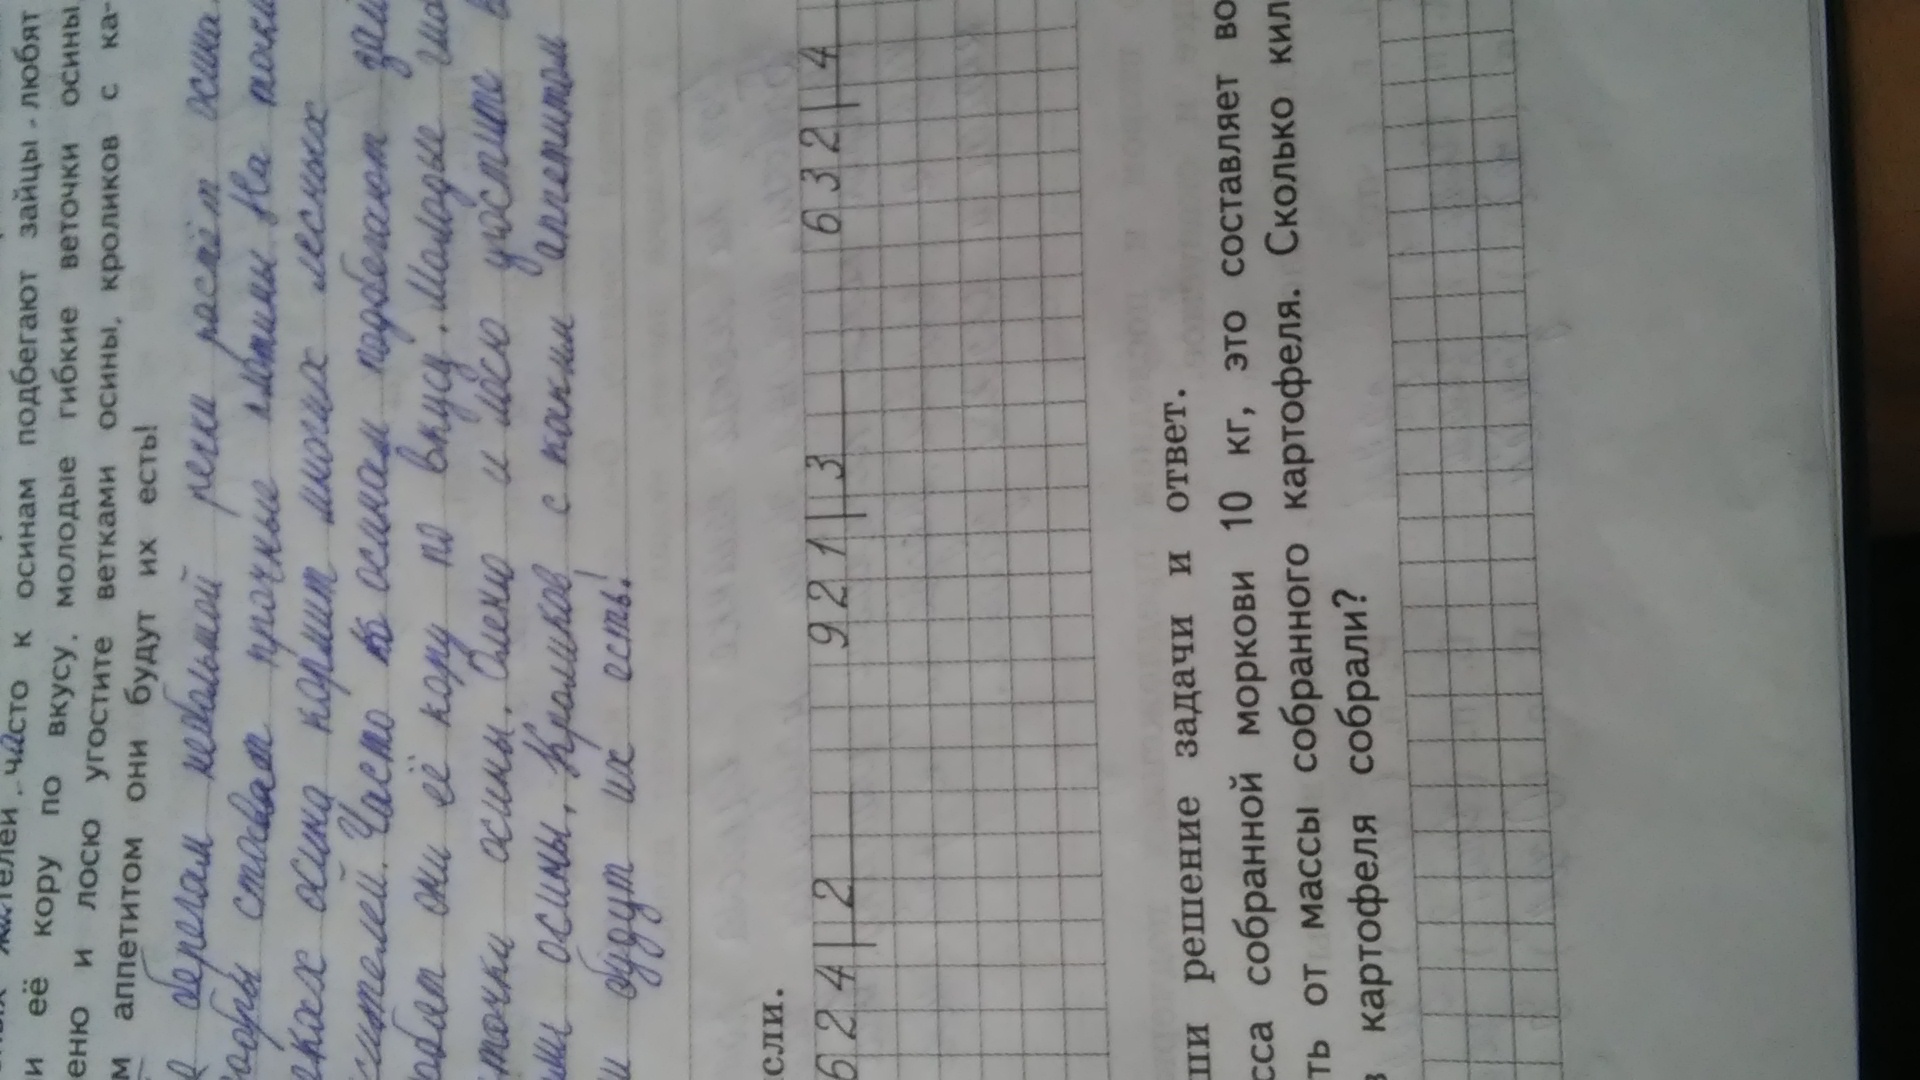 жителей, часто к осинам подбегают зайцы - любят
и её кору по вкусу, молодые гибкие веточки осины,
еню и лосю угостите ветками осины, кроликов с ка-
м аппетитом они будут их есть!
берегам небольшой речки растёт осина.
бобры ставят прочные плотины. На полян
янках осина кормит многих лесных
жителей. Часто к осинам подбегают зай
любят они её кору по вкусу. Молодые гиб
точки осины. Оленю и лосю угостите в
ми осины, Кроликов с каким аппетитом
и будут их есть!
сли.
624 2 921 3 632 4
ши решение задачи и ответ.
сса собранной моркови 10 кг, это составляет во
ть от массы собранного картофеля. Сколько кил
в картофеля собрали?